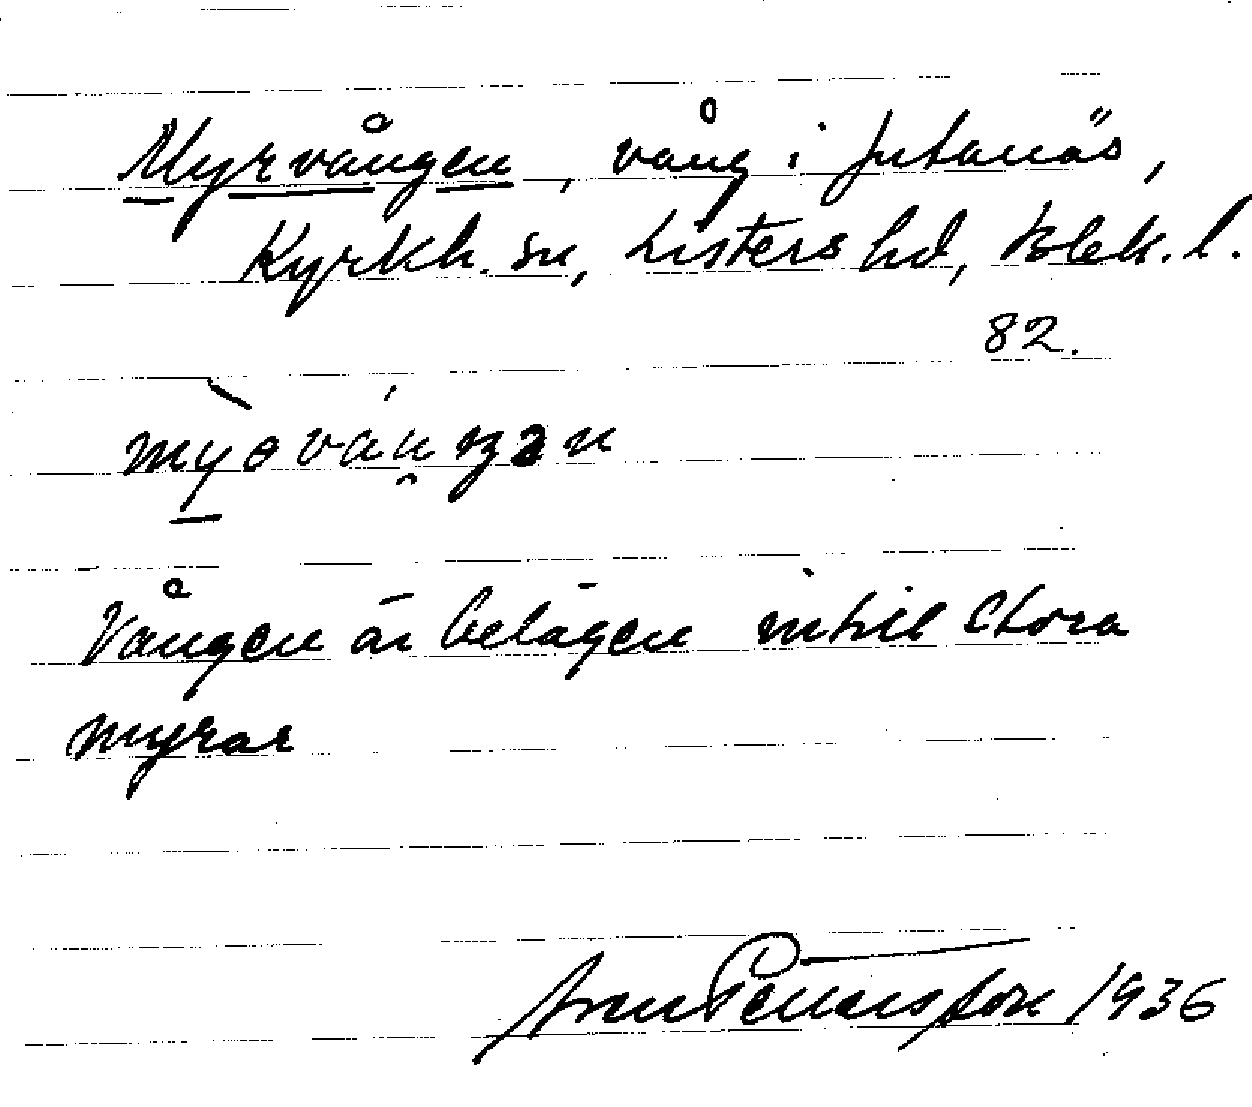 Myrvången, vång i Jutanäs,
Kyrkh. sn, Listers hd, Blek. l.
82.
Vången är belägen intill stora
myrar
Pettersson 1936